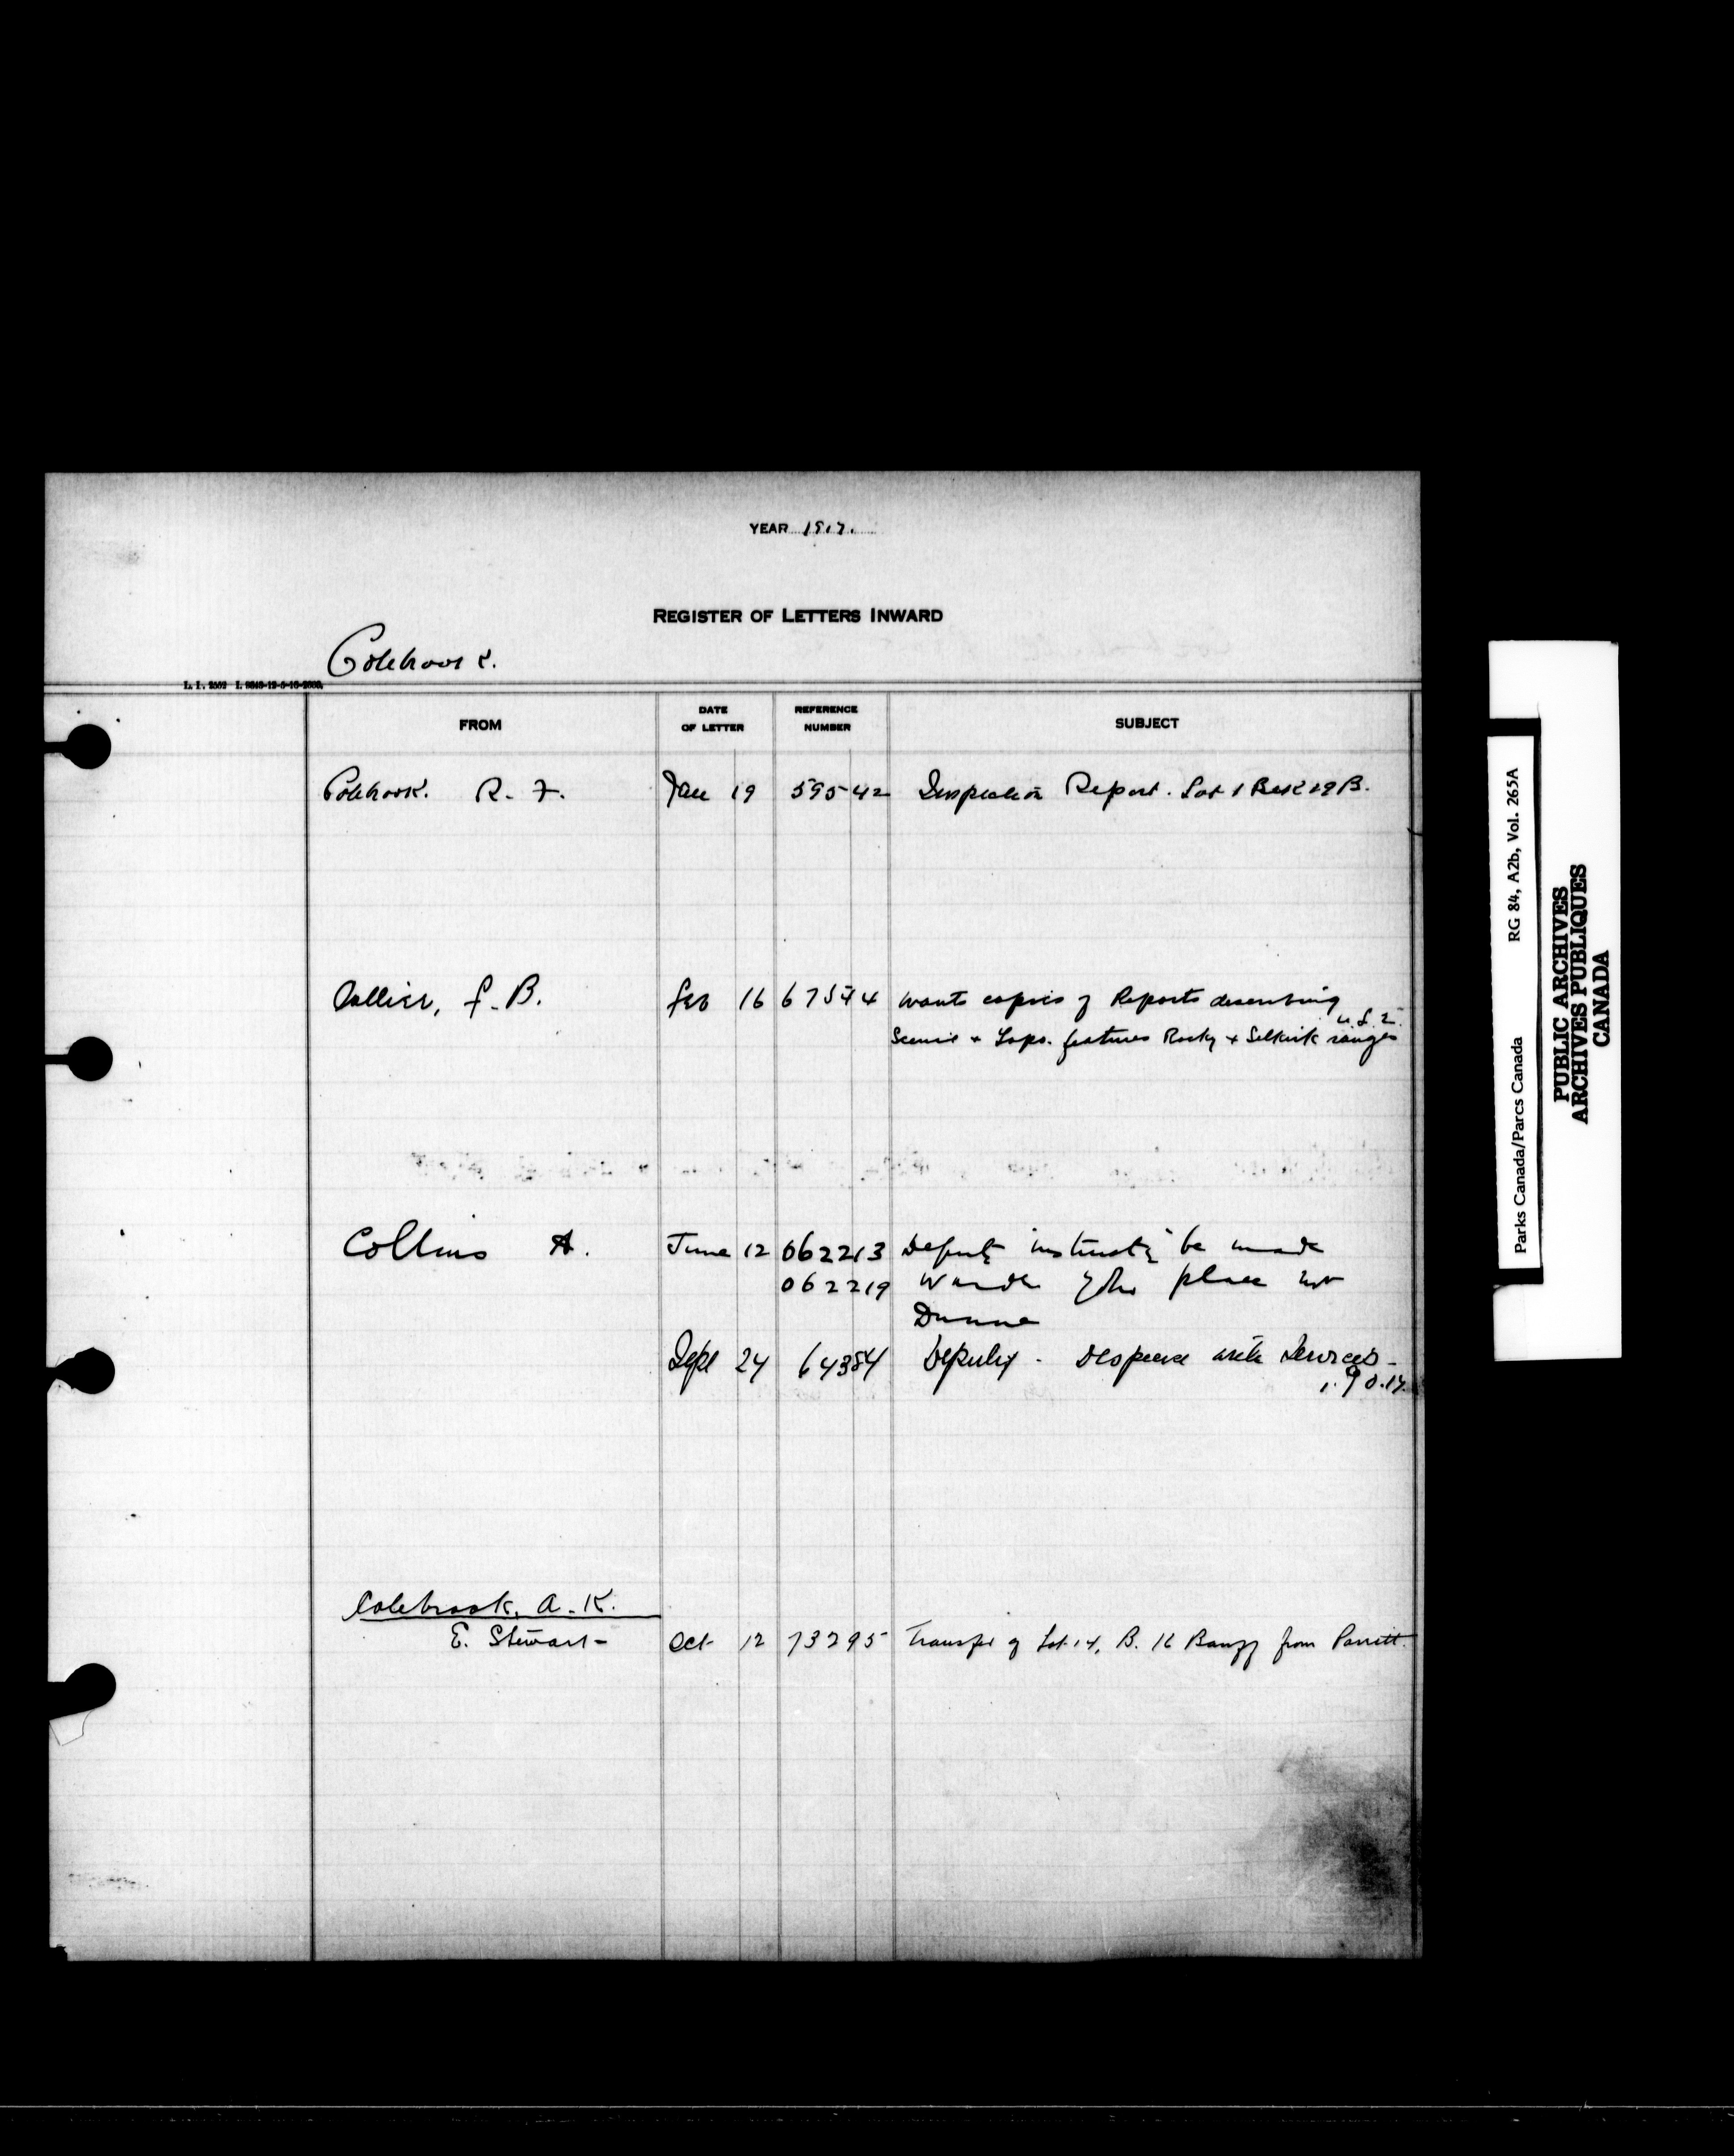 YEAR 1917.
REGISTER OF LETTERS INWARD
Colebrook.
FROM
DATE OF LETTER
REFERENCE NUMBER
SUBJECT
Colebrook. R. F. Jan 19 59542 Inspection Report. Lot 1 19 B.
Collier, J. B. Feb 16 67544 wants copies of Reports describing
Scenic + Topo. features Rocky + Selkirk ranges
Collins A. June 12 062213 Deputy be made
062219 place not
Dunne
Sept 24 64384 Deputy - Dispense with Services -
Colebrook, A. K.
E. Stewart - Oct 12 73295 Transfer of Lot 14, B. 16 Banff from Parrett.
Parks Canada/Parcs Canada RG 84, A2b, Vol. 265A
PUBLIC ARCHIVES
ARCHIVES PUBLIQUES
CANADA